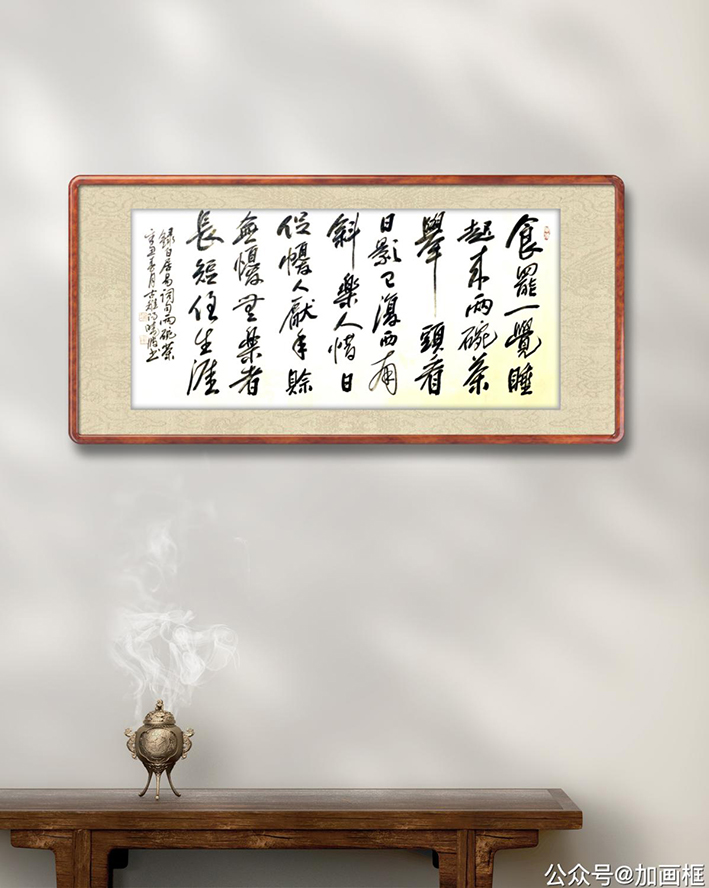 食罷一覺睡
起来兩碗茶
舉頭看
日影已復西南
斜樂人惜日
促懮人厭年賒
無懮無樂者
長短任生涯
録白居易詞句兩碗茶
辛丑月古越书
公众号@加画框